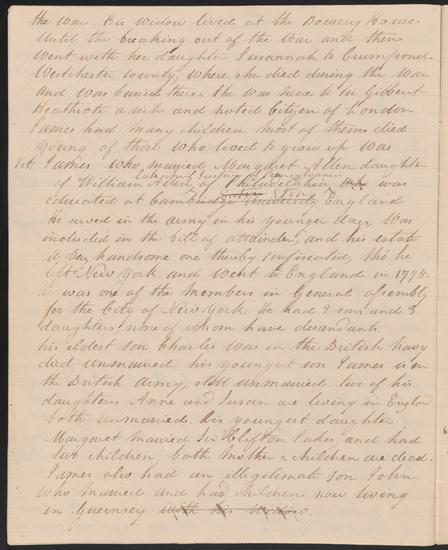 the war. His widow lived at the Bowery House
Until the breaking out of the War and then
Went with her daughter Susannah to Crumpond
Westchester County, where she died during the war
and was buried there. She was heir to Sir Gilbert
Heathcote a rich and noted Citizen of London.
James had many children most of them died
young of those who lived to grow up was
1st James who married Margaret Allen daughter
Late chief Justice of Pennsylvania
of William Allen, of Philadelphia who was
educated at Cambridge University England
He served in the army in his younger days, Was
included in the bill of attainder, and his estate
a very handsome one thereby confiscated, tho he
left New York and went to England in 1775.
He was one of the Members in General assembly
for the City of New York. He had 2 sons and 3
daughters none of whom have descendants.
his eldest son Charles was in the British Navy
died unmarried. his youngest son James is in
the British army, still unmarried two of his
daughters Anne and Susan are living in England
both unmarried. His youngest daughter
Margaret married Sir Jukes, and had
two children, both mother & children are dead.
James also had an illegitimate son John
who married and had children now living
in Guernsey with his widow.